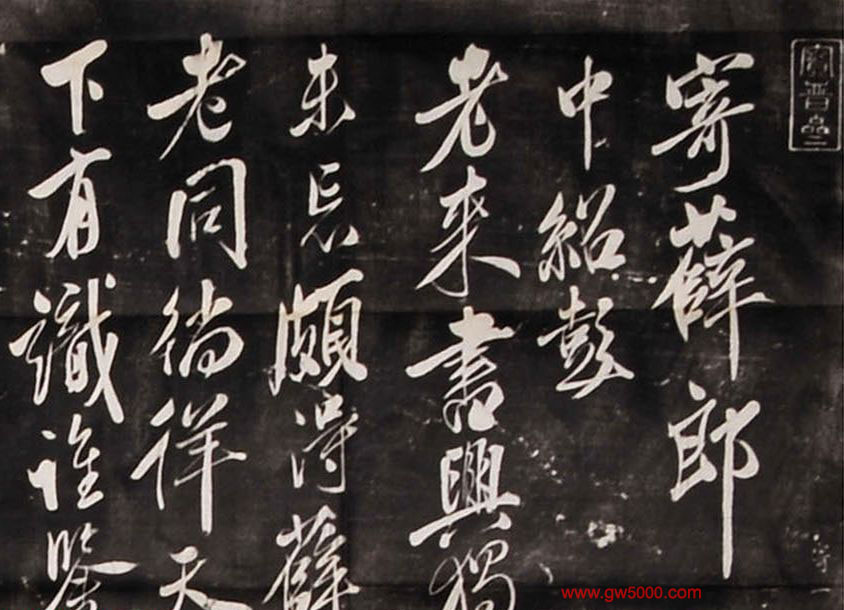 寄薛郎
中紹彭
老來書興獨
未忘頗得薛
老同徜徉天
下有識誰鑒
www.gw5000.com